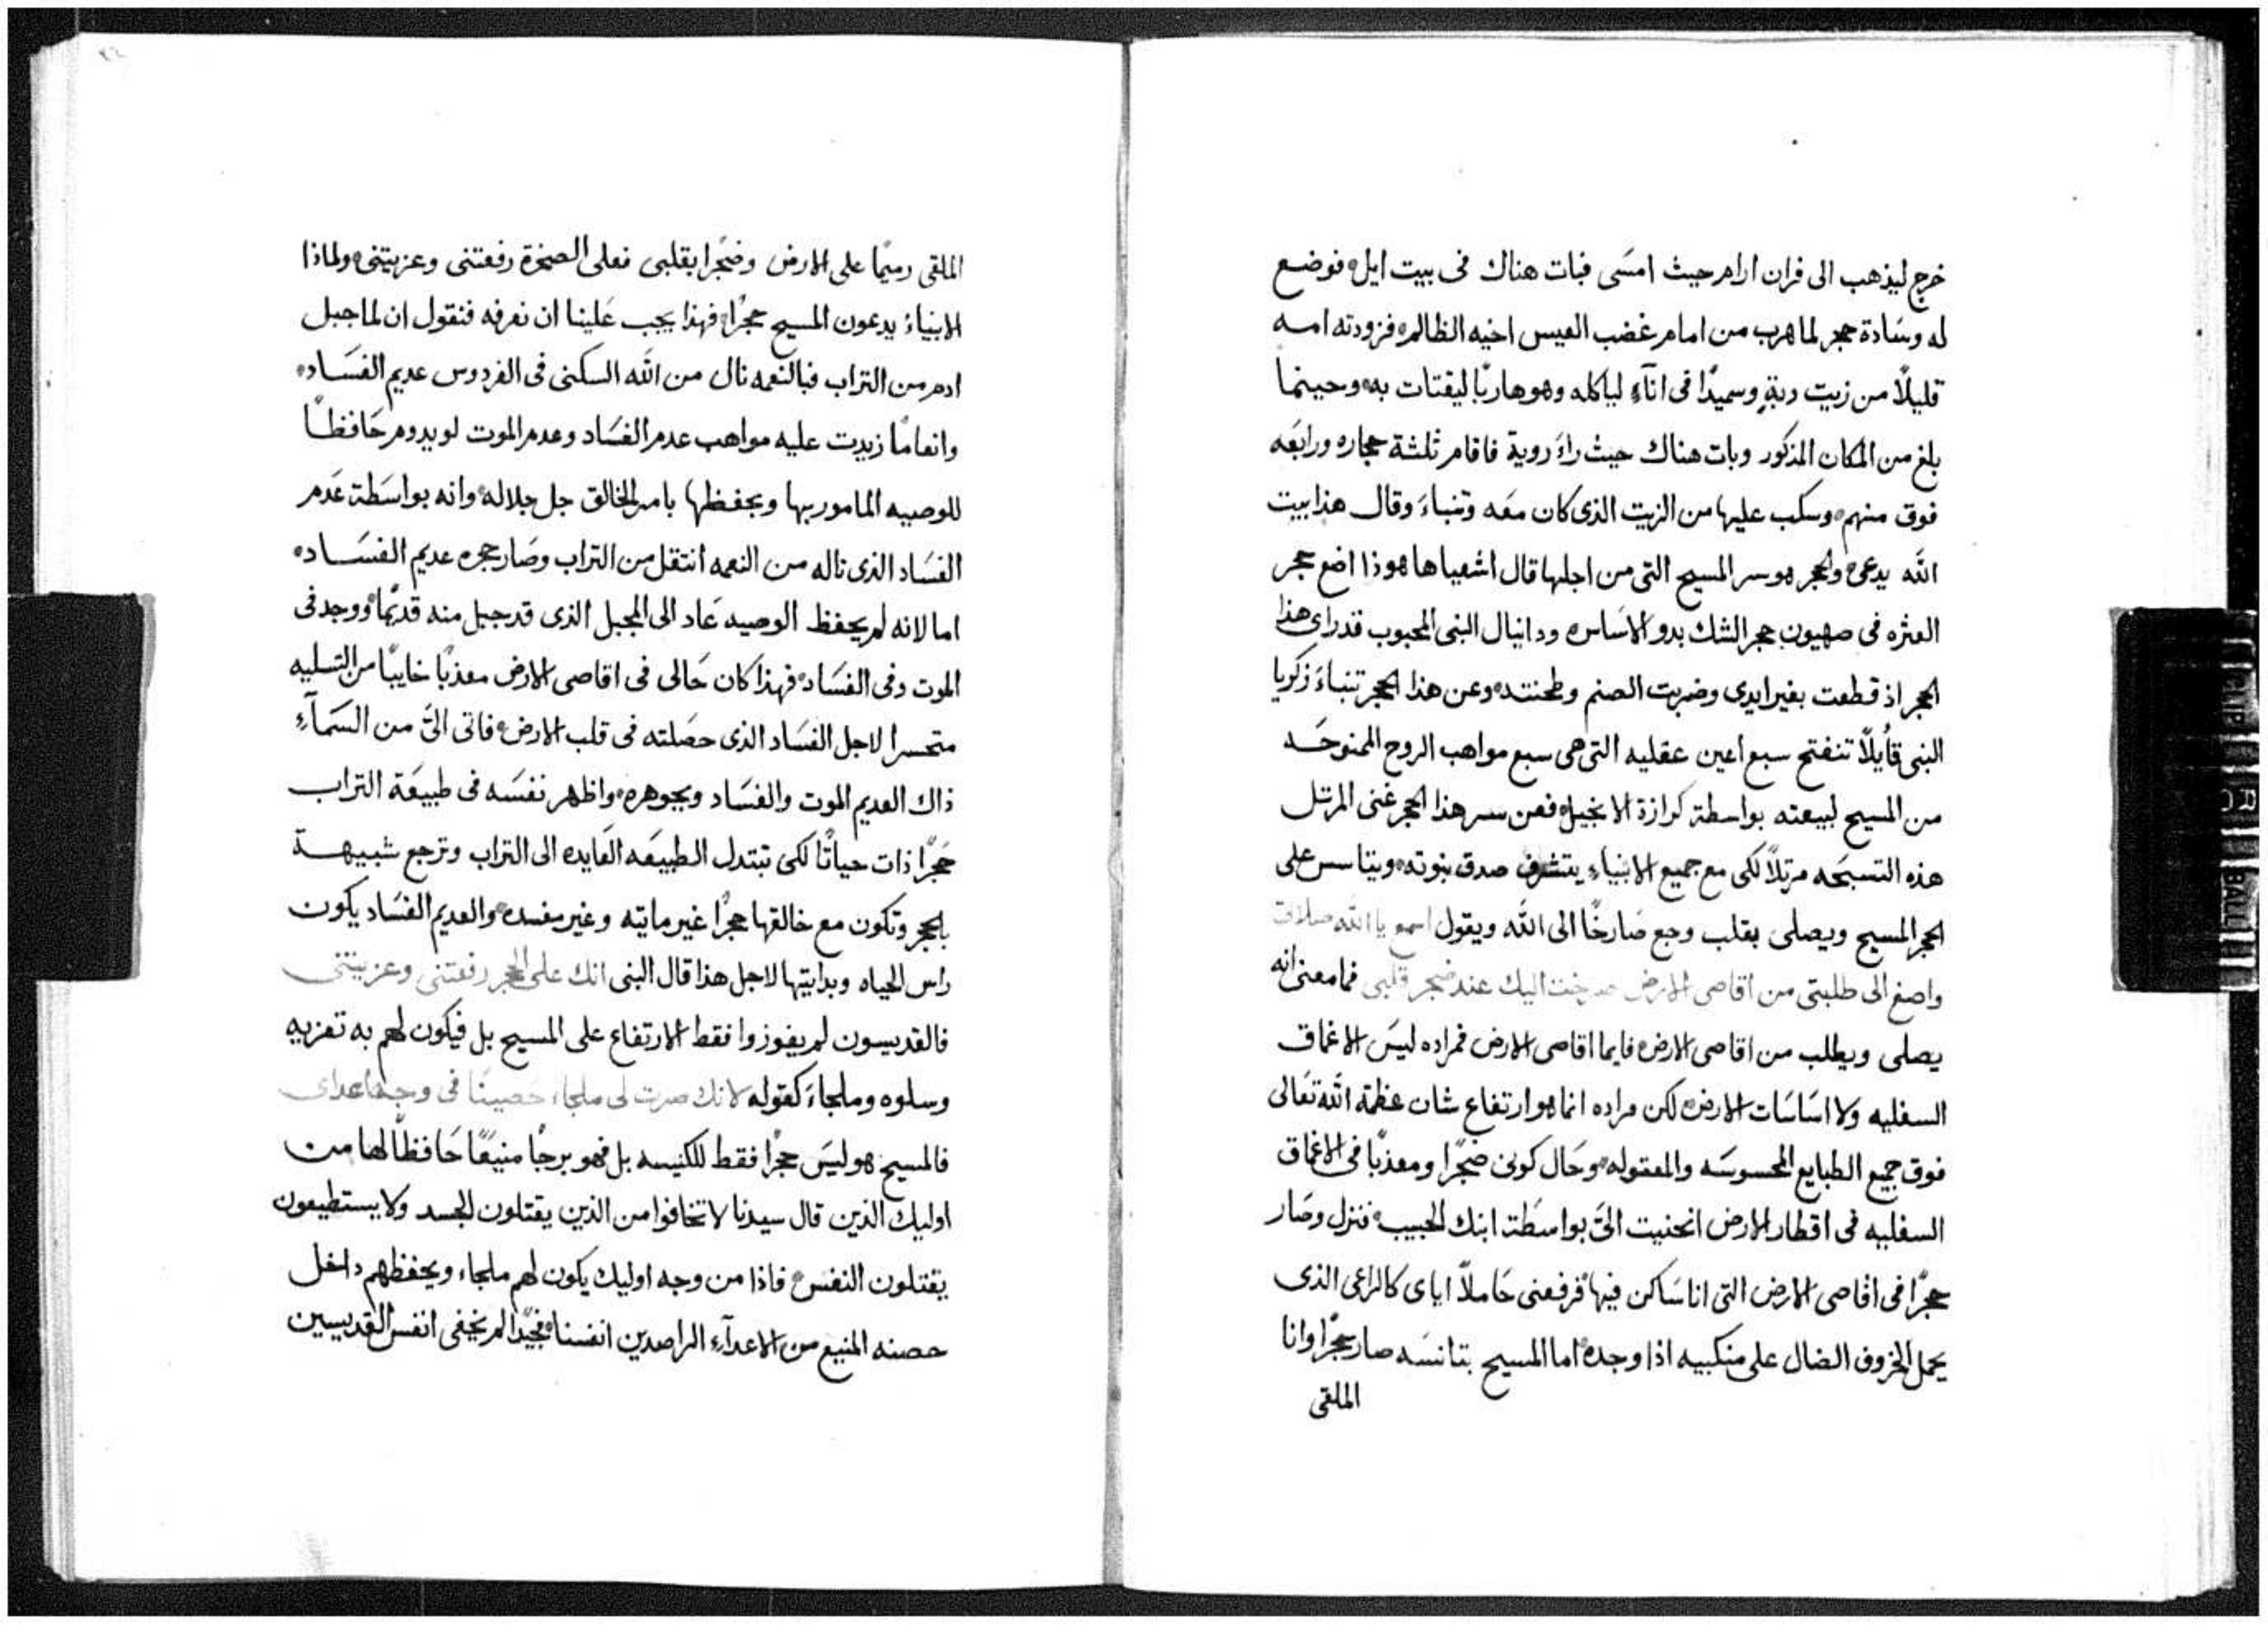 خرج ليذهب الى فران ارام حيث امسَى فبات هناك فى بيت ايل۰ فوضع
له وسَادة حجر لما هرب من امام غضب العيس اخيه الظالم۰ فزودته امه
قليلًا من زيت دبةٍ وسميدًا فى انآءٍ لياكله وهو هاربًا ليقتات به۰ وحينما
بلغ من المكان المذكور وبات هناك حيث راَءَ روية فاقام ثلثة حجاره ورابعَه
فوق منهم۰ وسكب عليها من الزيت الذى كان معَه وتنباءَ وقال هذا بيت
الله يدعى۰ والحجر هو سر المسيح التى من اجلها قال اشعيا ها هوذا اضع حجر
العثره فى صهيون حجر الشك بدو الاسَاس۰ ودانيال البنى المحبوب قد راى هذا
الحجر اذ قطعت بغير ايدى وضربت الصنم وطحنته۰ وعن هذا الحجر تنباءَ زكريا
النبى قاُيلًا تنفتح سبع اعين عقليه التى هى سبع مواهب الروح الممنوحَه
من المسيح لبيعته بواسطة كرازة الانجيل۰ فعن سر هذا الحجر غنى المرتل
هذه التسبحَه مرتلًا لكى مع جميع الانبياءِ يتشرف صدق بنوته۰ ويتاسس على
الحجر المسيح ويصلى بقلب وجع صَارخًا الى الله ويقول اسمع يا الله صلاتى
واصغ الى طلبتى من اقاصى الارض صرخت اليك عند ضجر قلبى فما معنى انه
يصلى ويطلب من اقاصى الارض۰ فايما اقاصى الارض فمراده ليسَ الاغماق
السفليه ولا اسَاسَات الارض۰ لكن مراده انما هو ارتفاع شان عظمة الله تعَالى
فوق جميع الطبايع المحسوسَه والمعقوله۰ وحَال كونى ضجًرا ومعذبًا فى الاغماق
السفليه فى اقطار الارض انحنيت الىَّ بواسَطة ابنك الحبيب۰ فنزل وصَار
حجرًا فى اقاصى الارض التى انا سَاكن فيها۰ فرفعنى حَاملًا اياى كالراعى الذى
يحمل الخروف الضال على منكبيه اذا وجده۰ اما المسيح بتانسَه صار حجرًا وانا
الملقى
الملقى رميمًا على الارض وضجرًا بقلبى فعلى الصخرة رفعتنى وعزيتنى۰ ولماذا
الابنياءُ يدعون المسيح حجرًا۰ فهذا يجب عَلينا ان نعرفه فنقول ان لما جبل
ادم من التراب فبالنعمه نال من الله السكنى فى الفردوس عديم الفسَاد۰
وانعامًا زيدت عليه مواهب عدم الفسَاد وعدم الموت لو يدوم حَافظًا
للوصيه المامور بها ويحفظها بامر الخالق جل جلاله۰ وانه بواسَطة عَدم
الفسَاد الذى ناله من النعمه انتقل من التراب وصَار حجره عديم الفسَاد۰
اما لانه لم يحفظ الوصيه عَاد الى المجبل الذى قد جبل منه قديمًا۰ ووجد فى
الموت وفى الفسَاد۰ فهذا كان حَالى فى اقاصى الارض معذبًا خايبًا من التسليه
متحسرا لاجل الفسَاد الذى حصَلته فى قلب الارض۰ فاتى الىَّ من السَمآءِ
ذاك العديم الموت والفسَاد وبجوهره۰ واظهر نفسَه فى طبيعَة التراب
حَجرًا ذات حياتًا لكى تبتدل الطبيعَه العَايده الى التراب وترجع شبيهة
بالحجر وتكون مع خالقها حجرًا غير ماتيه وغير مفسده۰ والعديم الفسَاد يكون
راس الحياه وبدايتها لاجل هذا قال البنى انك على الحجر رفعتنى وعزيتنى
فالقديسون لم يفوزوا فقط الارتفاع على المسيح بل فيكون لهم به تعزيه
وسلوه وملجاءَ كقوله لانك صرت لى ملجاء حَصينًا فى وجه اعداى
فالمسيح هو ليسَ حجرًا فقط للكنيسه بل فهو برجًا منيعًا حَافظًا لها من
اوليك الذين قال سيدنا لا تخافوا من الذين يقتلون الجسد ولا يستطيعون
يقتلون النفس۰ فاذا من وجه اوليك يكون لهم ملجاء ويحفظهم داخل
حصنه المنيع من الاعدآءِ الراصدين انفسنا۰ فجيًدا لم يخفى انفس القديسين